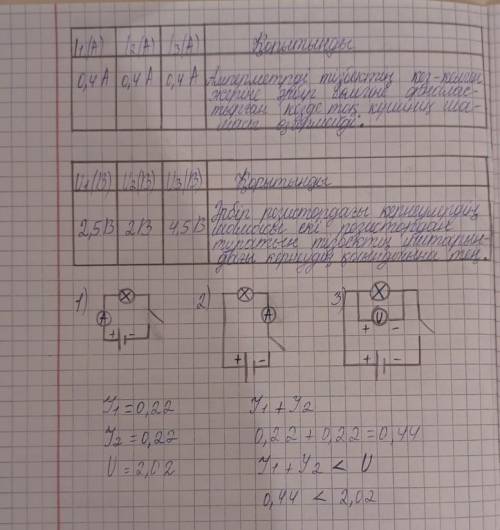 I₁(A) I₂(A) I₃(A) Қорытынды
0,4 A 0,4 A 0,4 A Амперметрді тізбектің кез-келген
жеріне әрбір бөлігіне орналас-
тырған кезде ток күшінің ша-
масы өзгермейді.
U₁(B) U₂(B) U₃(B) Қорытынды
2,5 B 2 B 4,5 B Әрбір резистордағы кернеулердің
қосындысы екі резистордан
тұратын тізбектің ұштарын-
дағы кернеудің қосындысына тең.
1) 2) 3)
A A V
+ - + - + -
+ -
Y₁ = 0,22 Y₁ + Y₂
Y₂ = 0,22 0,22 + 0,22 = 0,44
U = 2,02 Y₁ + Y₂ < U
0,44 < 2,02